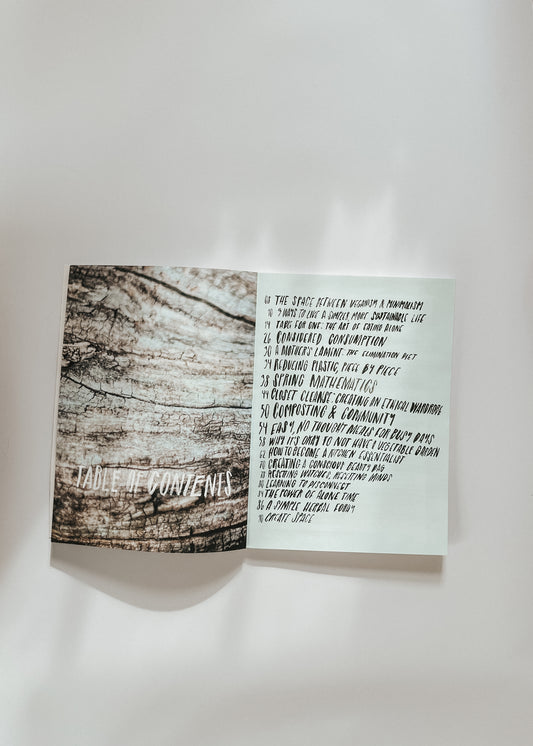 TABLE OF CONTENTS
08 THE SPACE BETWEEN VEGANISM & MINIMALISM
10 9 WAYS TO LIVE A SIMPLER, MORE SUSTAINABLE LIFE
14 TABLE FOR ONE: THE ART OF EATING ALONE
26 CONSIDERED CONSUMPTION
30 A MOTHER'S LAMENT: THE ELIMINATION DIET
34 REDUCING PLASTIC, PIECE BY PIECE
38 SPRING MATHEMATICS
44 CLOSET CLEANSE: CREATING AN ETHICAL WARDROBE
50 COMPOSTING & COMMUNITY
54 EASY, NO THOUGHT MEALS FOR BUSY DAYS
58 WHY IT'S OKAY TO NOT HAVE A VEGETABLE GARDEN
62 HOW TO BECOME A KITCHEN ESSENTIALIST
70 CREATING A CONSCIOUS BEAUTY BAG
RESCUING WITCHES, RESETTING MINDS
80 LEARNING TO DISCONNECT
84 THE POWER OF ALONE TIME
86 A SIMPLE HERBAL FORAY
90 CREATE SPACE